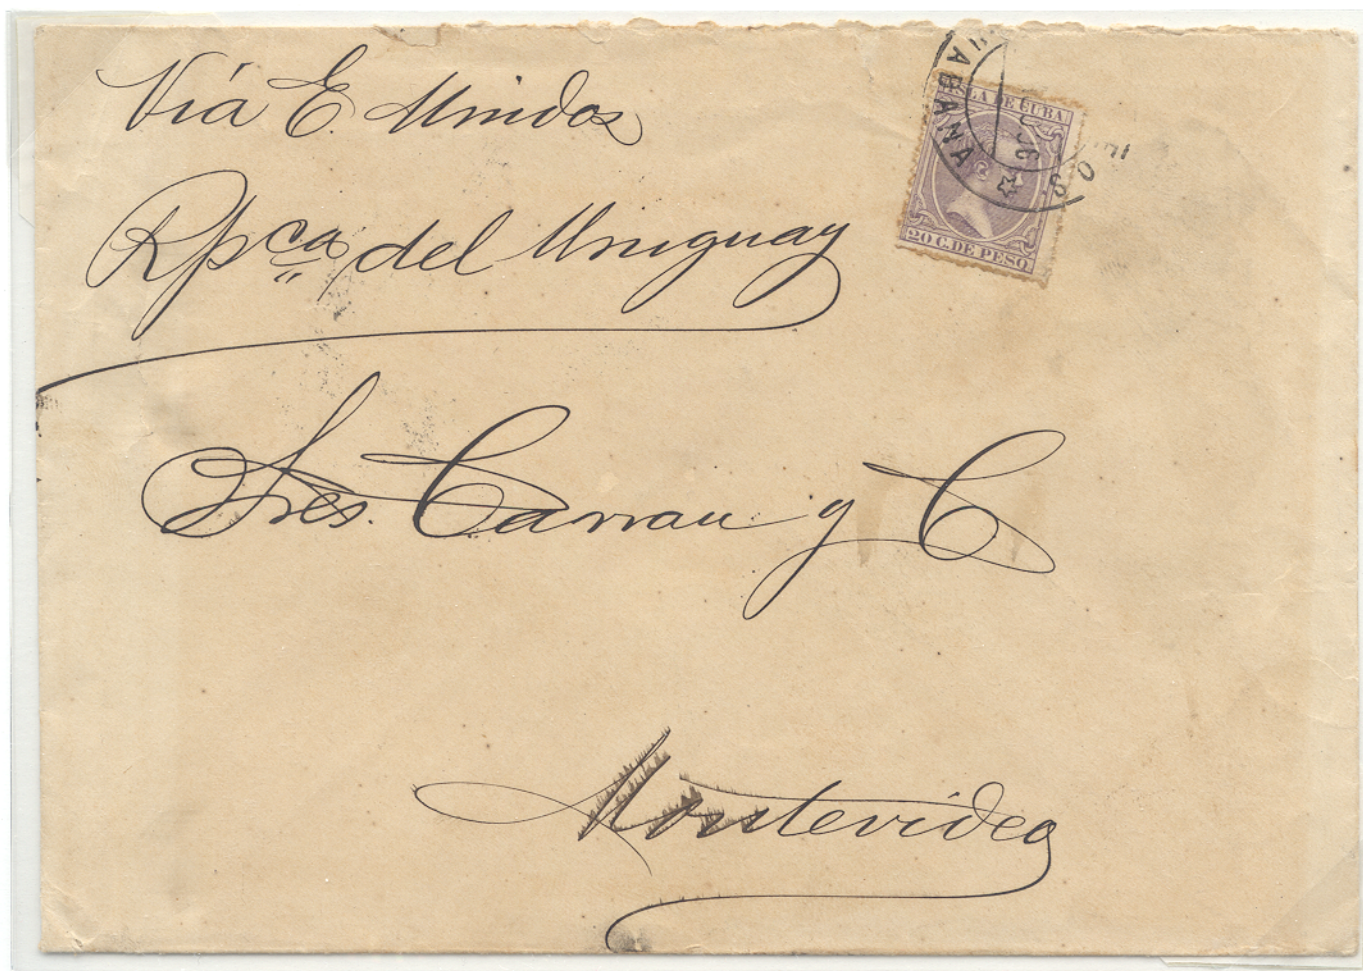 Vía E. Unidos
Rpca del Uruguay
Sres. Carrau y C
Montevideo
ISLA DE CUBA
20 C. DE PESO
HABANA